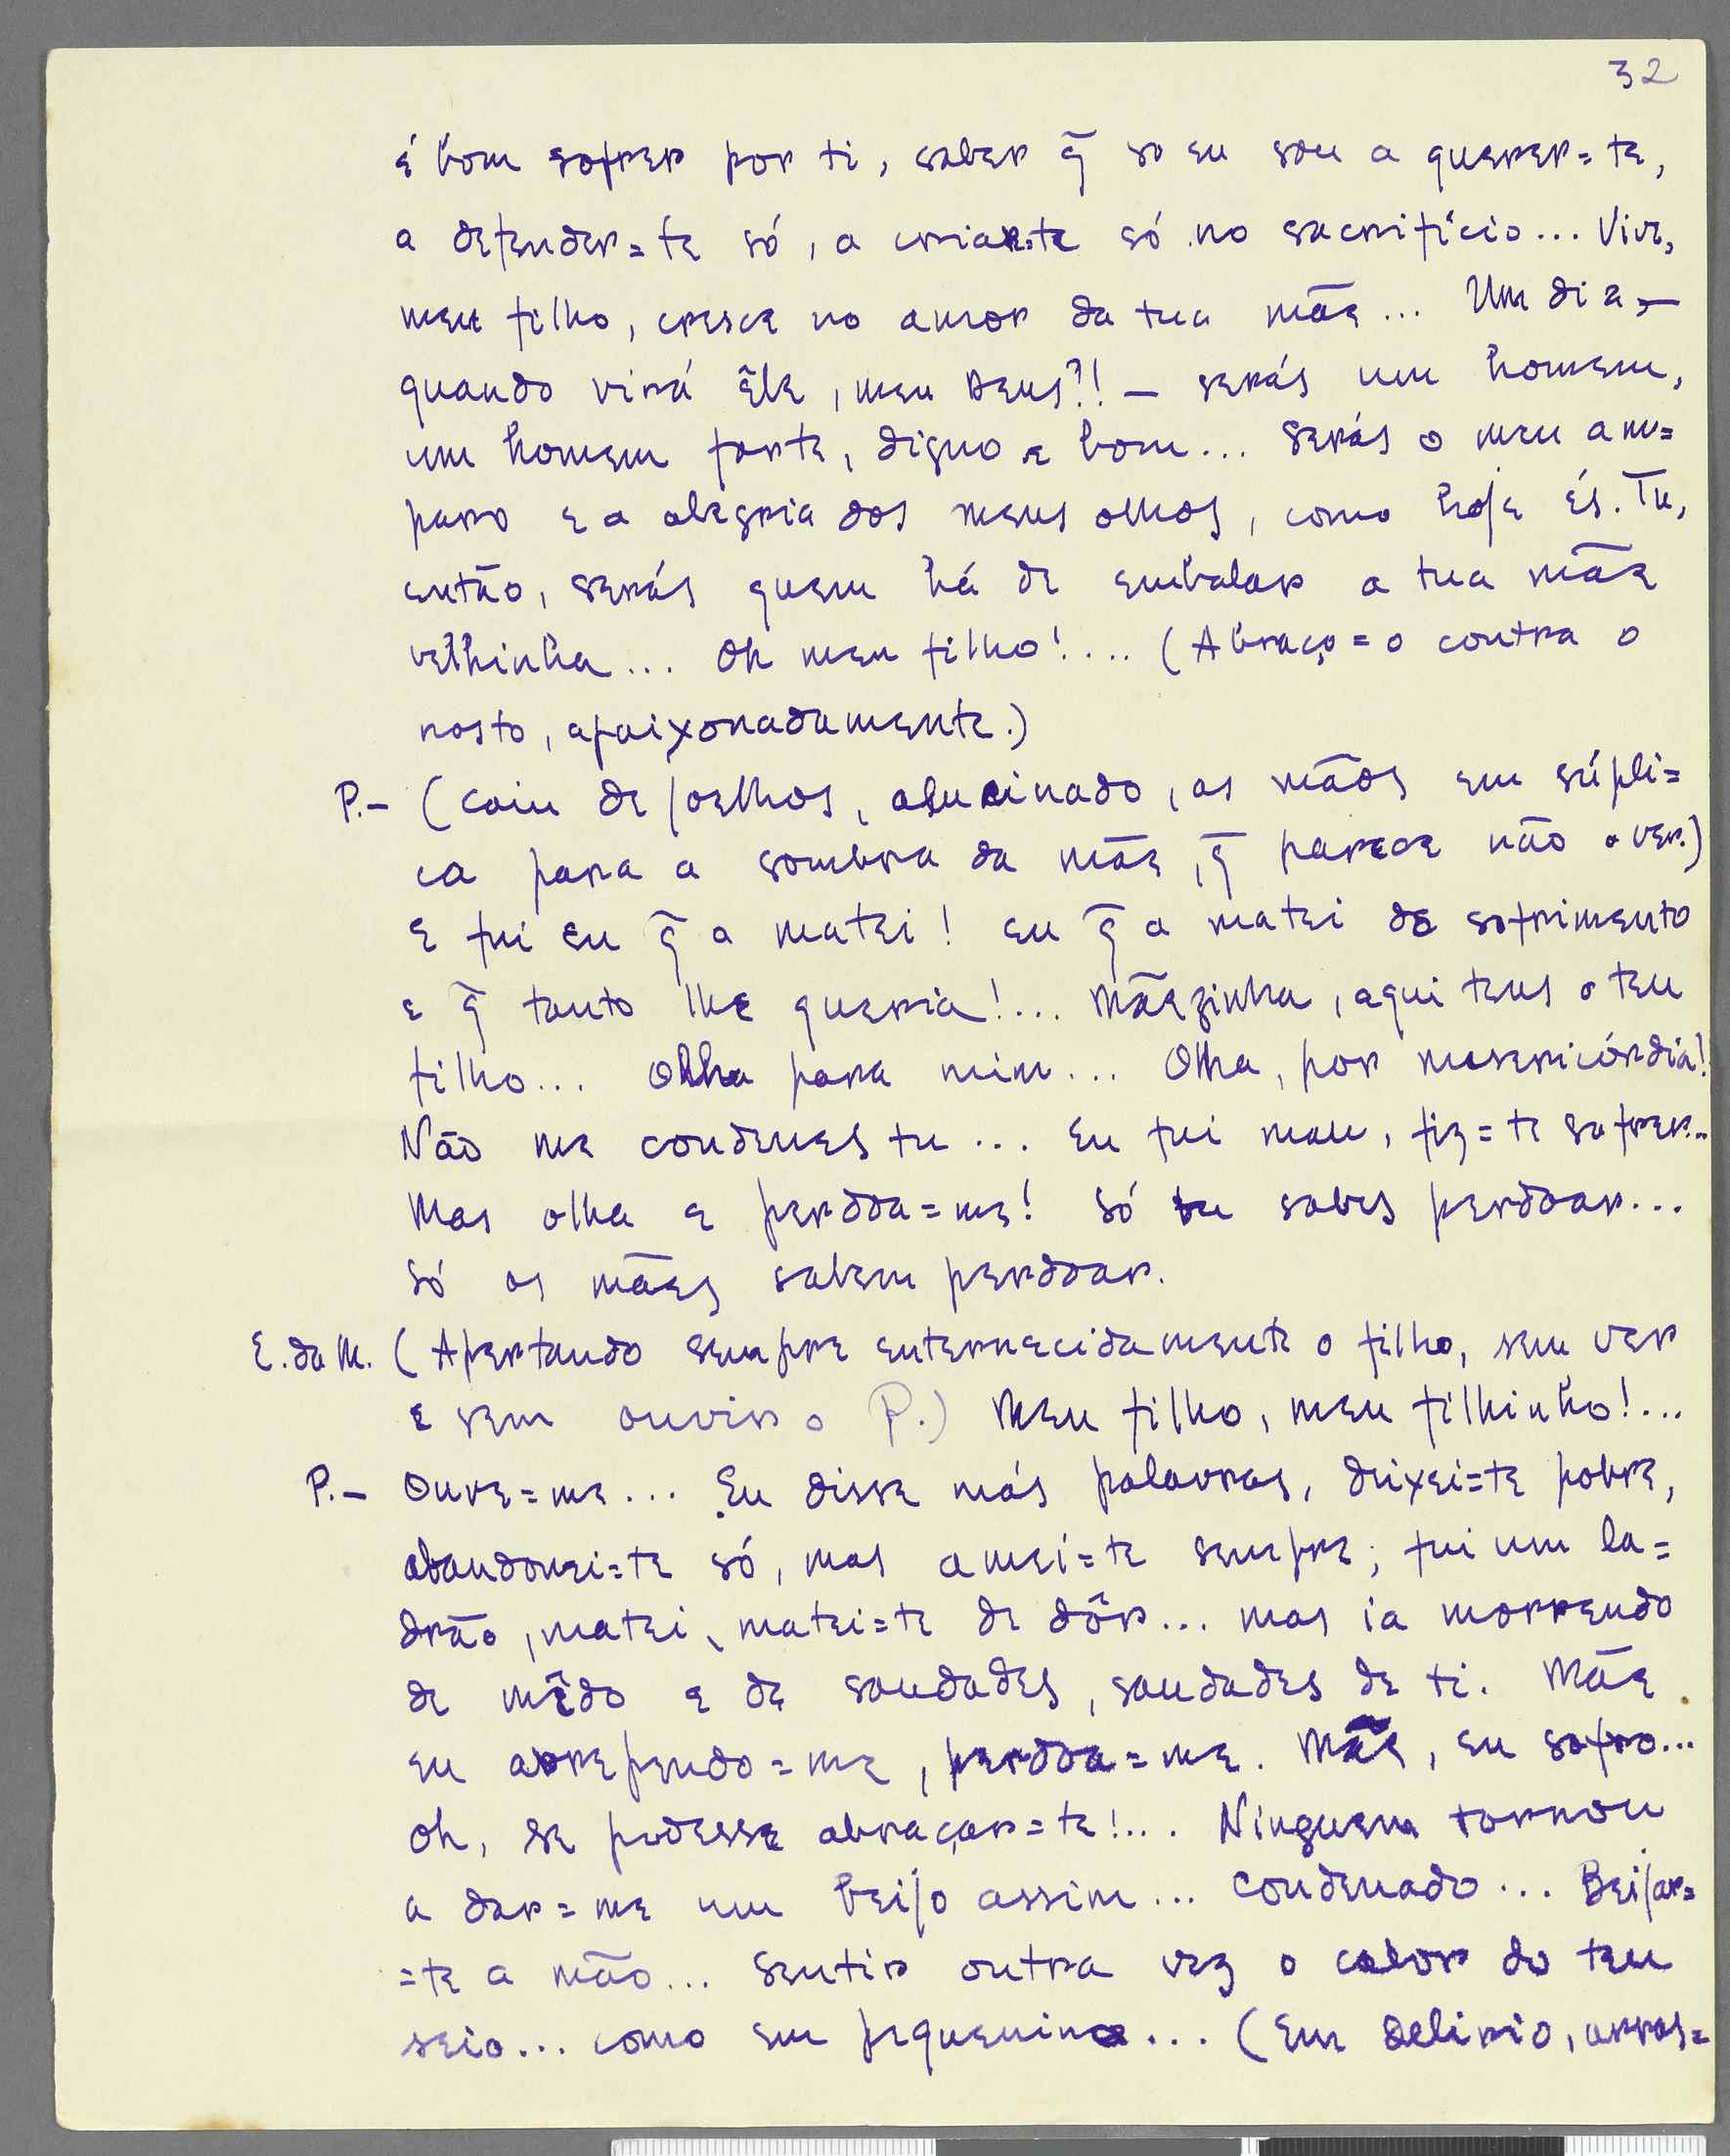 32
é bom sofrer por ti, saber q̃ só eu sou a querer=te,
a defender=te só, a criar=te só no sacrifício... Vive,
meu filho, cresce no amor da tua mãe... Um dia, —
quando virá êle, meu Deus?! — serás um homem,
um homem forte, digno e bom... Serás o meu am=
paro e a alegria dos meus olhos, como hoje és. Tu,
então, serás quem há de embalar a tua mãe
velhinha... Oh meu filho!.... (Abraça=o contra o
rosto, apaixonadamente.)
P.— (Caiu de joelhos, alucinado, as mãos em súpli=
ca para a sombra da mãe, q̃ parece não o ver.)
E fui eu q̃ a matei! eu q̃ a matei de sofrimento
e q̃ tanto lhe queria!... Mãezinha, aqui tens o teu
filho... Olha para mim... Olha, por misericórdia!
Não me condenes tu... Eu fui mau, fiz=te sofrer...
Mas olha e perdoa=me! Só tu sabes perdoar...
Só as mães sabem perdoar.
E. da M. (Apertando sempre enternecidamente o filho, sem ver
e sem ouvir o P.) Meu filho, meu filhinho!...
P.— Ouve=me... Eu disse más palavras, deixei=te pobre,
abandonei=te só, mas amei=te sempre; fui um la=
drão, matei, matei=te de dôr... mas ia morrendo
de mêdo e de saudades, saudades de ti. Mãe
eu arrependo=me, perdoa=me. Mãe, eu sofro...
Oh, se pudesse abraçar=te!... Ninguem tornou
a dar=me um beijo assim... Condenado... Beijar=
=te a mão... Sentir outra vez o calor do teu
seio... como em pequenino... (Em delirio, arras=